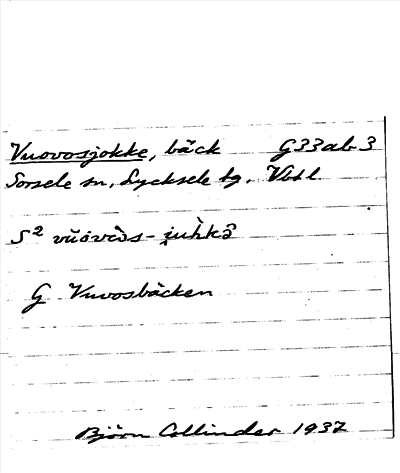 Vuovosjokke, bäck G33ab3
Sorsele sn, Lycksele tg, Vbtl
S² vŭövɷ̀s-ju̯hkɷ̂
G Vuvosbäcken
Björn Collinder 1937